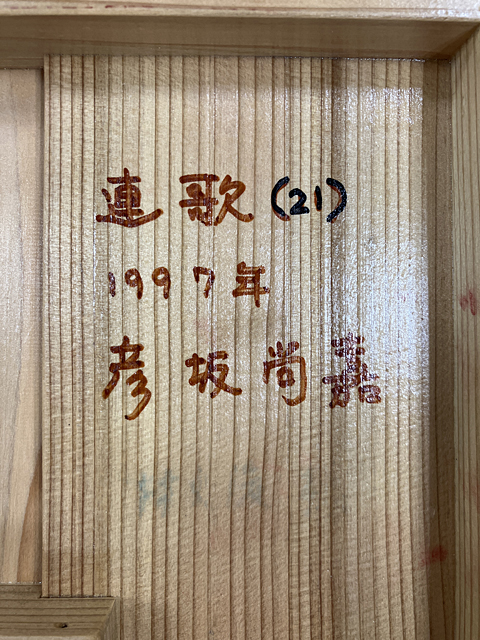 連歌(21)
1997年
彦坂尚嘉